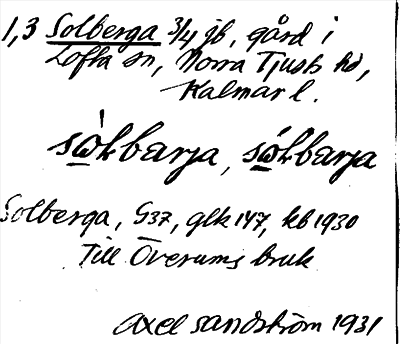 1,3 Solberga 3/4 jb, gård i
Lofta sn, Norra Tjusts hd,
Kalmar l.
sò̤lbarja, só̤lbarja
Solberga, G37, glk 147, kb 1930
Till Överums bruk
Axel Sandström 1931